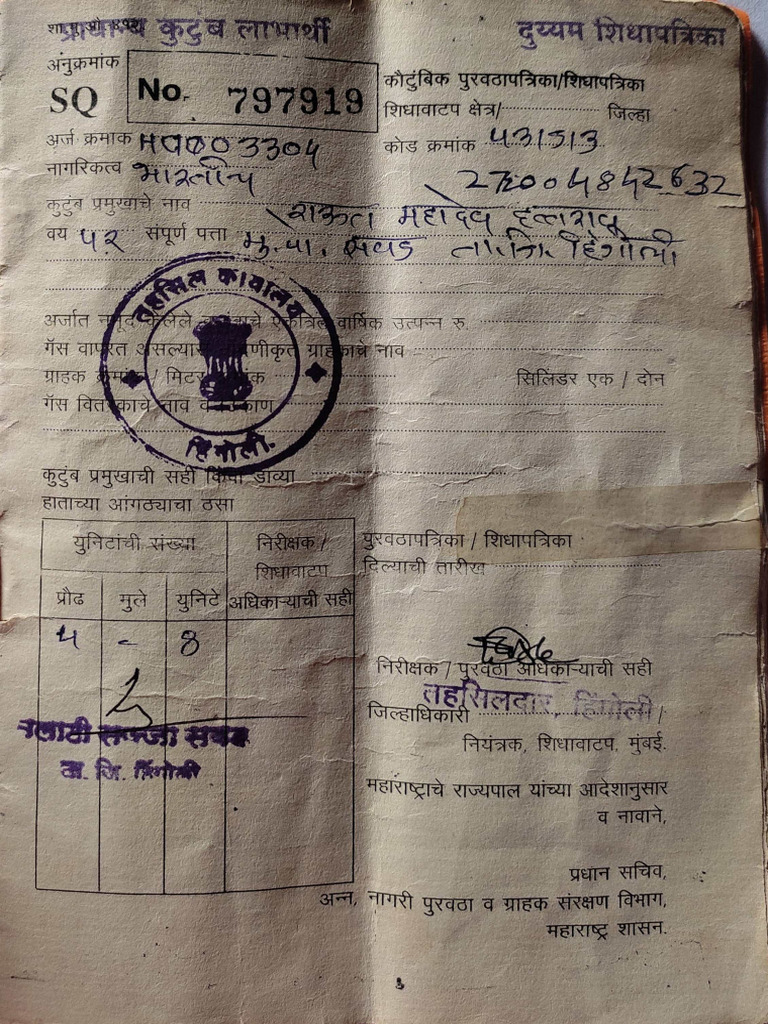 प्राधान्य कुटुंब लाभार्थी दुय्यम शिधापत्रिका
अनुक्रमांक
SQ No. 797919
कौटुंबिक पुरवठापत्रिका/शिधापत्रिका
शिधावाटप क्षेत्र/ जिल्हा
अर्ज क्रमांक
कोड क्रमांक ५३१५१३
नागरिकत्व भारतीय
272004842632
कुटुंब प्रमुखाचे नाव राऊत महादेव
वय ५२ संपूर्ण पत्ता मु.पो. सवड ता.जि. हिंगोली
तहसिल कार्यालय
हिंगोली.
अर्जात नमूद केलेले एकत्रित वार्षिक उत्पन्न रु.
गॅस वापरत असल्यास ग्राहकाचे नाव
ग्राहक क्रमांक / मिटर
सिलिंडर एक / दोन
गॅस वितरकाचे नाव व ठिकाण
कुटुंब प्रमुखाची सही किंवा डाव्या
हाताच्या आंगठ्याचा ठसा
युनिटांची संख्या
निरीक्षक / शिधावाटप अधिकाऱ्याची सही
प्रौढ मुले युनिटे
५ - ४
तलाठी सज्जा सवड
ता. जि. हिंगोली
पुरवठापत्रिका / शिधापत्रिका
दिल्याची तारीख
निरीक्षक / पुरवठा अधिकाऱ्याची सही
तहसिलदार, हिंगोली
जिल्हाधिकारी /
नियंत्रक, शिधावाटप, मुंबई.
महाराष्ट्राचे राज्यपाल यांच्या आदेशानुसार
व नावाने,
प्रधान सचिव,
अन्न, नागरी पुरवठा व ग्राहक संरक्षण विभाग,
महाराष्ट्र शासन.